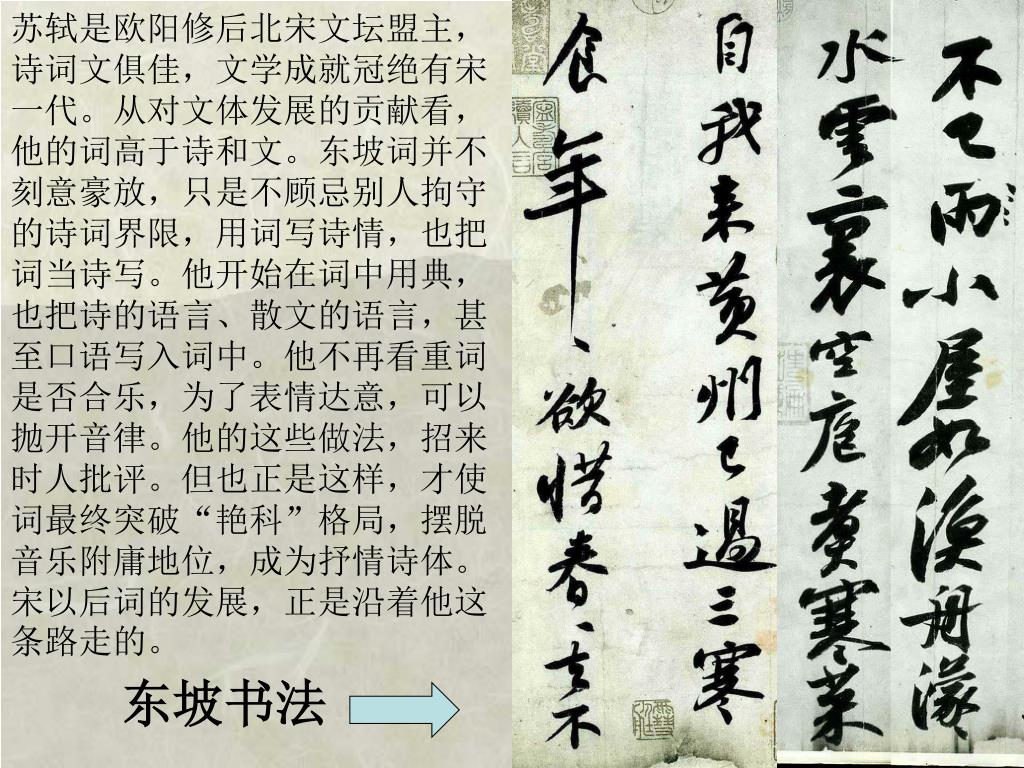 苏轼是欧阳修后北宋文坛盟主，
诗词文俱佳，文学成就冠绝有宋
一代。从对文体发展的贡献看，
他的词高于诗和文。东坡词并不
刻意豪放，只是不顾忌别人拘守
的诗词界限，用词写诗情，也把
词当诗写。他开始在词中用典，
也把诗的语言、散文的语言，甚
至口语写入词中。他不再看重词
是否合乐，为了表情达意，可以
抛开音律。他的这些做法，招来
时人批评。但也正是这样，才使
词最终突破“艳科”格局，摆脱
音乐附庸地位，成为抒情诗体。
宋以后词的发展，正是沿着他这
条路走的。
东坡书法
自我来黄州已過三寒
食年〻欲惜春〻去不
不已雨小屋如漁舟濛
水雲裏空庖煮寒菜